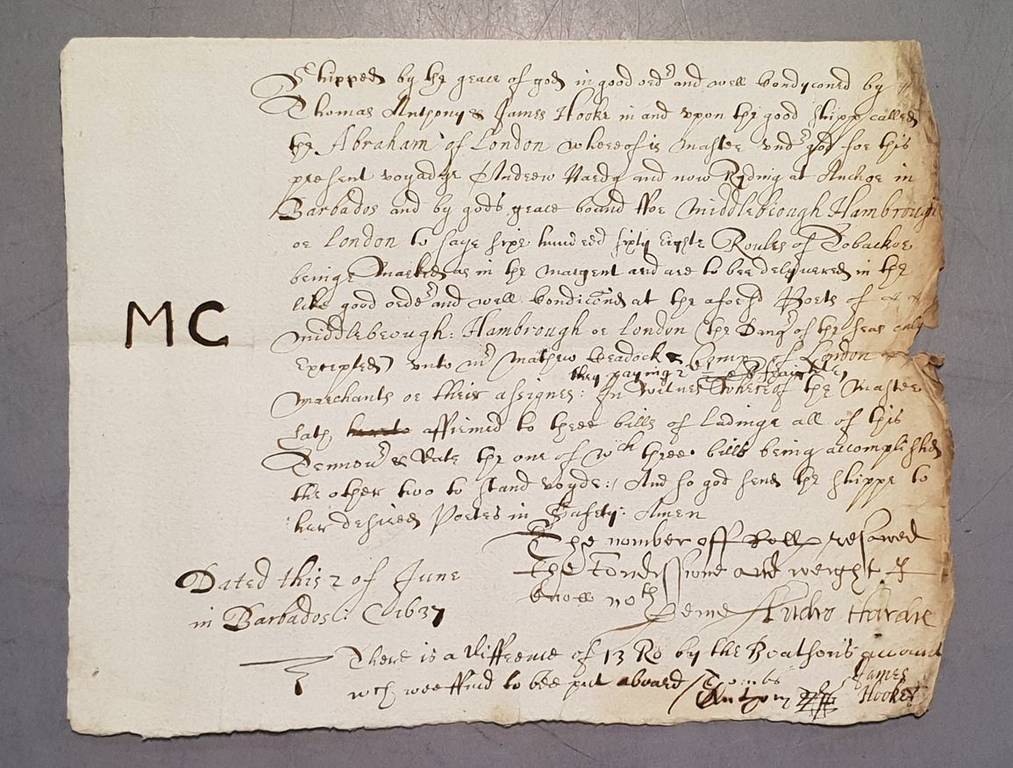 Shipped by the grace of god in good ordr and well Condyconed by
Thomas Anthony & James Hooke in and upon the good shipp called
the Abraham of London whereof is Master undr god for this
present voyadge Andrew Hardy and now Ryding at Anchor in
Barbados and by gods grace bound ffor Middlebrough Hambrough
or London to saye sixe hundred sixty Eighte Roules of Tobackoe
beinge Marked as in the margent and are to bee delyuered in the
like good ordr and well Condiconed at the aforesd Ports of
MC
Middlebrough: Hambrough or London (the Dangr of the seas only
Excepted) unto mr Mathew Cradock & Comp of London
they payinge fraighte,
Marchants or their assignes: In witnes whereof the Master
hath hereto affirmed to three bills of Ladinge all of this
Tennour & Date the one of wch three bills being accomplished
the other two to stand voyde: And so god send the shippe to
her desired Portes in Safety: Amen
The nomber off Roll resaved
the Condissione and weight I
know noth
Andro Hardie
Dated this 2 of June
in Barbados: 1637
There is a difference of 13 Ro by the Boatson's account
wch wee ffind to bee put aboard
James
Hooke
Anthony